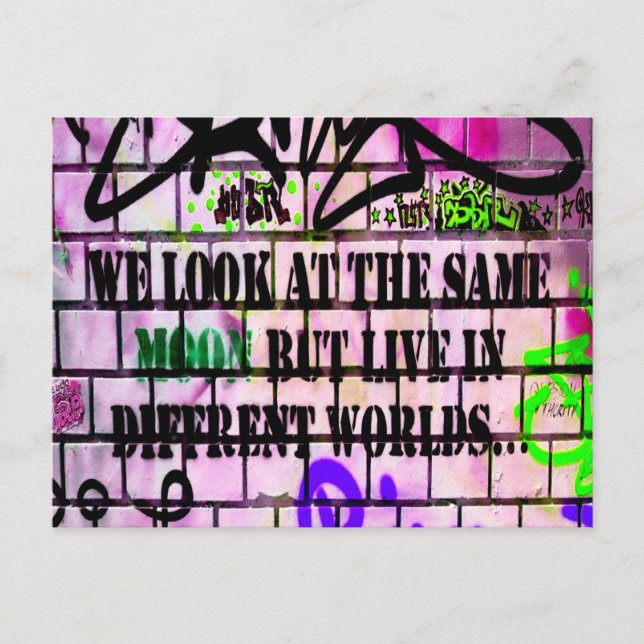 WE LOOK AT THE SAME
MOON BUT LIVE IN
DIFFRENT WORLDS...